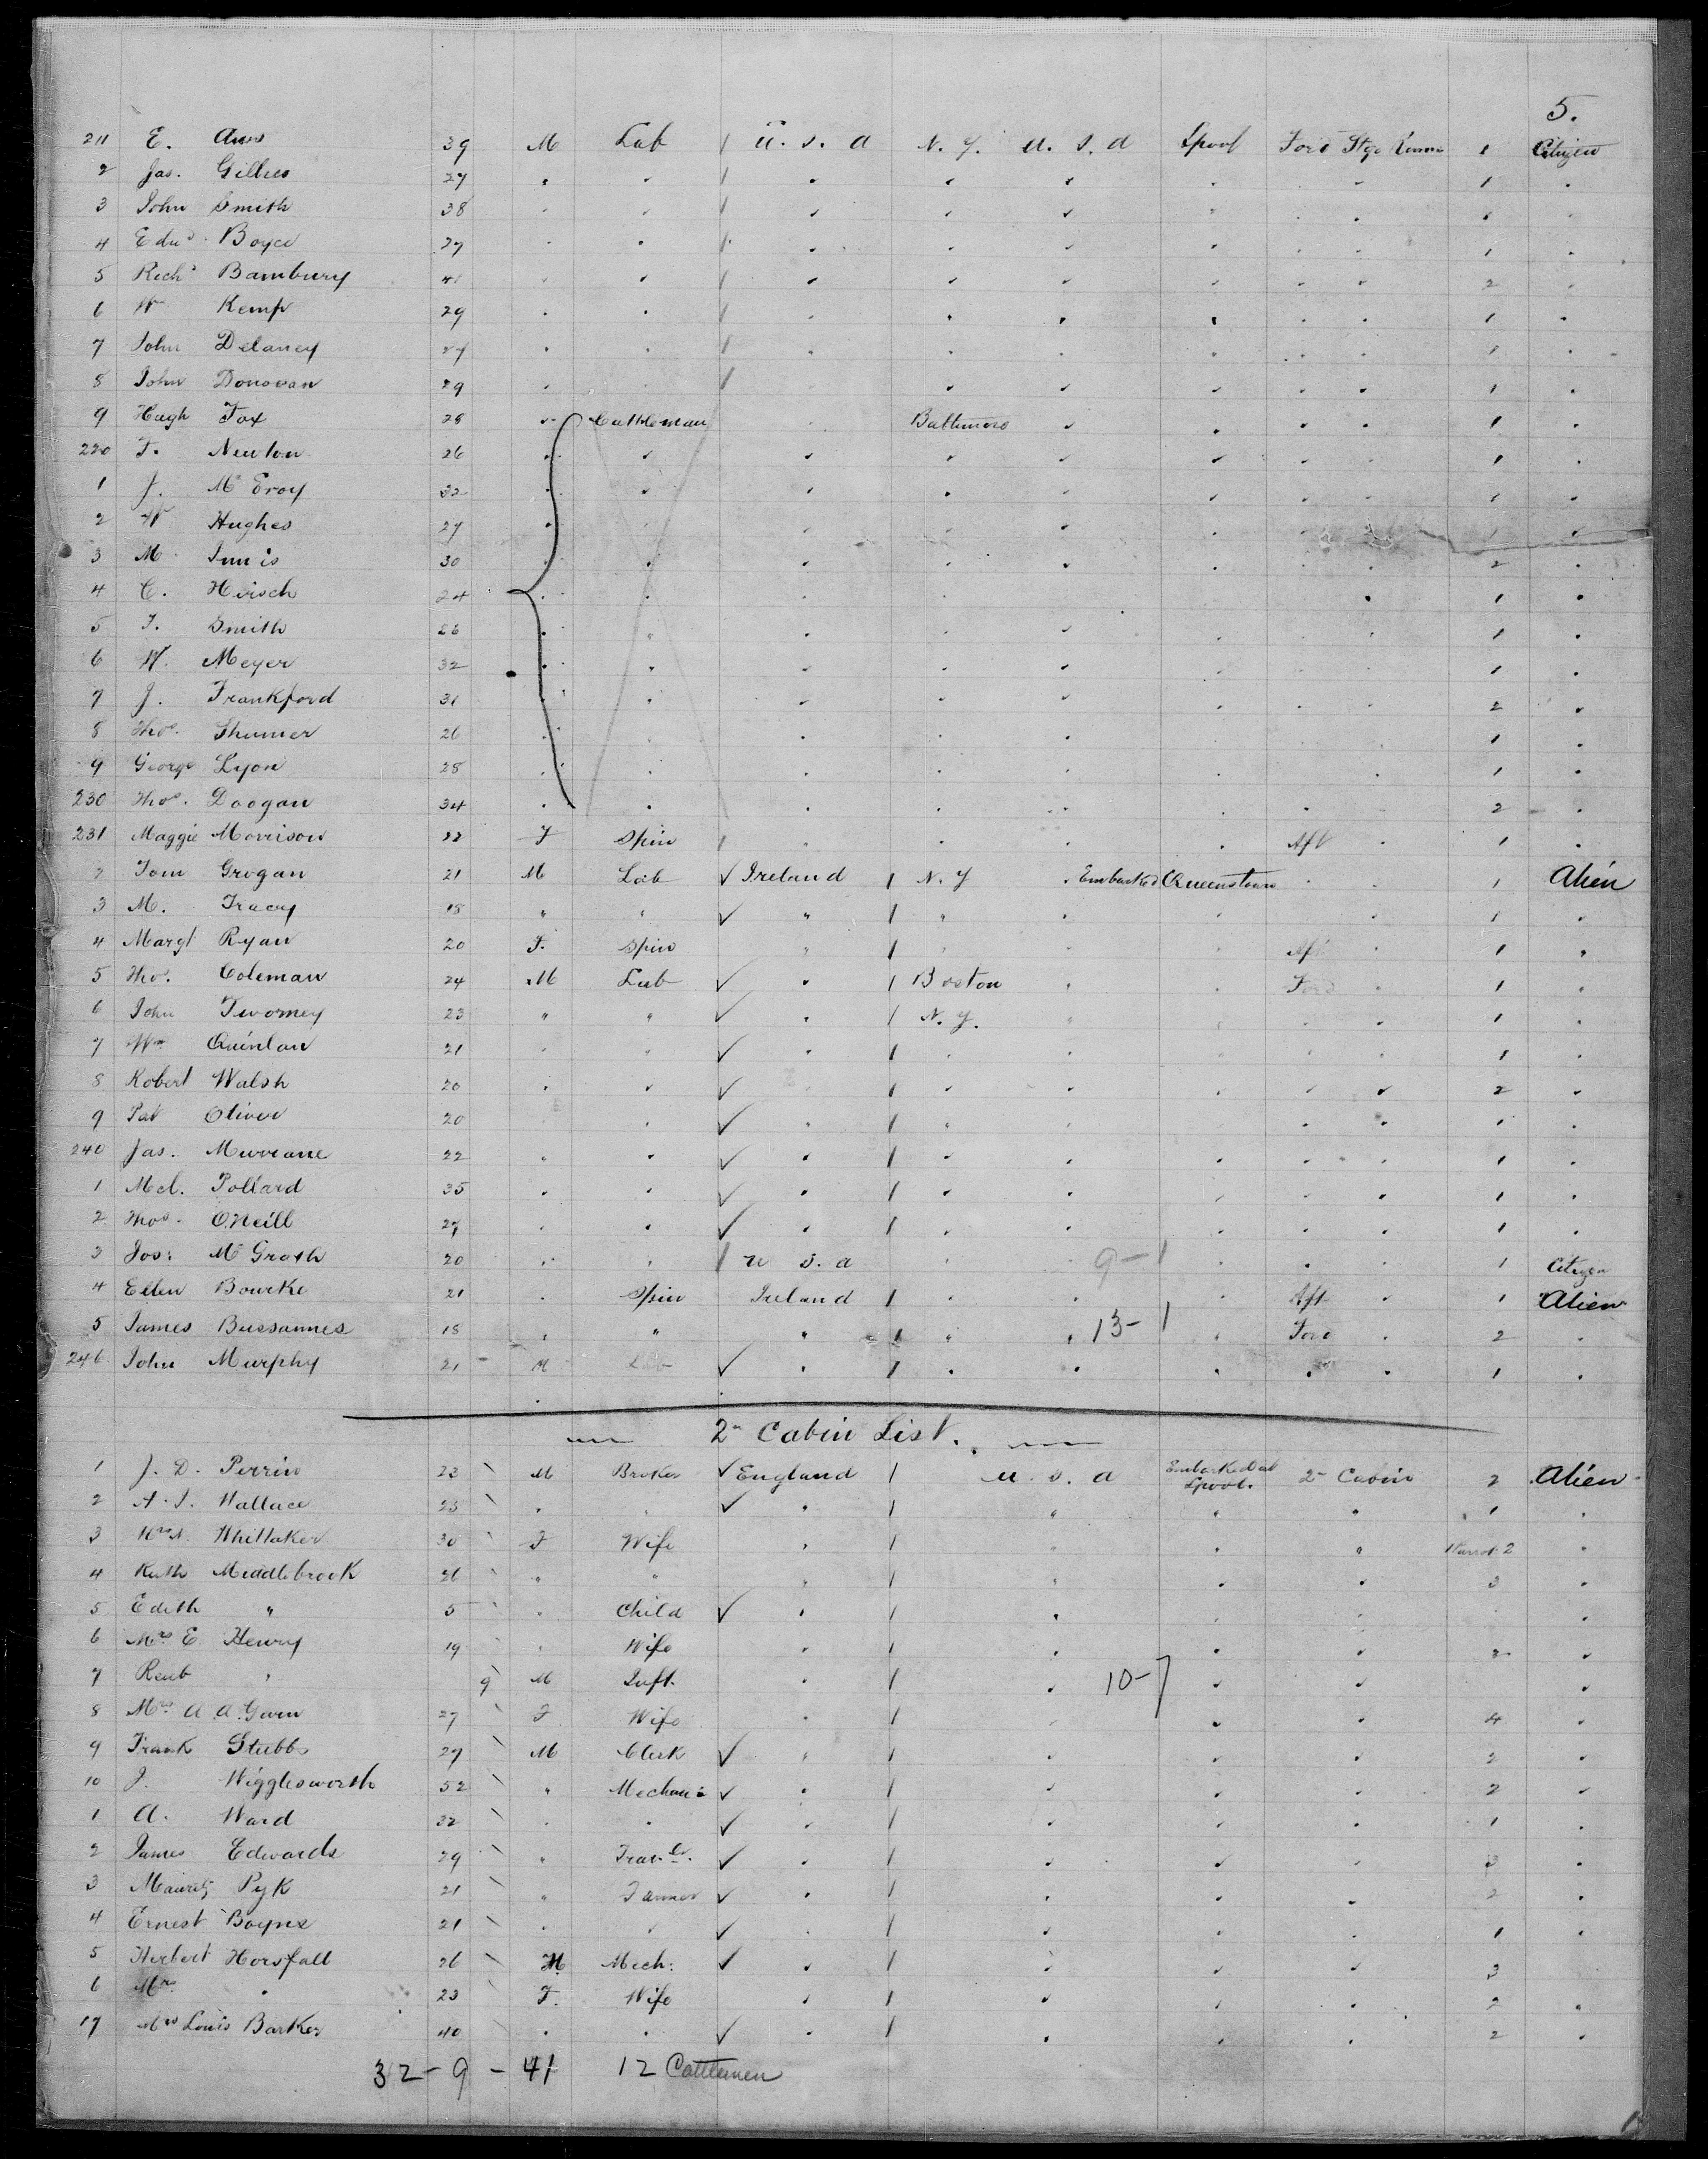 5.
211 E. Ams 39 M Lab / U. S. A N. Y. U. S. A Lpool Ford Stge 1 Citizen
2 Jas. Gillies 27 " " / " " " " " 1 "
3 John Smith 38 " " / " " " " " " "
4 Edwd Boyce 27 " " / " " " " " 1 "
5 Richd Bambury 41 " " / " " " " " " 2 "
6 Wm Kemp 29 " " / " " " " " " 1 "
7 John Delaney 27 " " / " " " " " " 1 "
8 John Donovan 29 " " / " " " " " 1 "
9 Hugh Fox 28 " Cattleman " Baltimore " " " " 1 "
220 F. Newton 26 " " " " " " " " 1 "
1 J. McEroy 32 " " " " " " " " 1 "
2 W Hughes 27 " " " " " " 1 "
3 M. Innis 30 " " " " " " " 2 "
4 C. Hirsch 24 " " " " " 1 "
5 F. Smith 26 " " " " " " " 1 "
6 W. Meyer 32 " " " " " " 1 "
7 J. Frankford 31 " " " " " " " " 2 "
8 Thos. Shumer 26 " " " " " 1 "
9 George Lyon 28 " " " " " " " 1 "
230 Thos. Doogan 34 " " " " " " " 2 "
231 Maggie Morrison 22 F Spin / " " " " Aft " 1 "
2 Tom Grogan 21 M Lab ✓ Ireland / N. Y " Embarked Queenstown " " 1 Alien
3 M. Tracey 18 " " ✓ " / " " " " 1 "
4 Margt Ryan 20 F. Spin " / " " " Aft " 1 "
5 Thos. Coleman 24 M Lab ✓ " / Boston " " Ford " 1 "
6 John Twomey 23 " " ✓ " / N. Y. " " " " 1 "
7 Wm Quinlan 21 " " ✓ " / " " " " " 1 "
8 Robert Walsh 20 " " ✓ " / " " " " " 2 "
9 Pat Oliver 20 " ✓ " / " " " " " 1 "
240 Jas. Murrane 22 " " ✓ " / " " " " " 1 "
1 Mcl. Pollard 35 " " ✓ " / " " " " " 1 "
2 Thos. O.Neill 27 " " ✓ " / " " " " " 1 "
3 Jos: McGrath 20 " " / U S. A " " 9-1 " " 1 Citizen
4 Ellen Bourke 21 " Spin Ireland / " " Aft " 1 Alien
5 James Bussannes 18 " " " / " " 13-1 " Ford " 2 "
246 John Murphy 21 M Lab ✓ " / " " " " " 1 "
2n Cabin List.
1 J. D. Perrin 23 M Broker ✓ England / U. S. A Embarked at Lpool. 2n Cabin 2 Alien
2 A. S. Wallace 23 " " ✓ " / " " " 1 "
3 Whittaker 30 F Wife " / " " " 2 "
4 Ruth Middlebrook 26 " " " / " " " 3 "
5 Edith " 5 " Child ✓ " / " " " "
6 Mrs E Henry 19 " Wife " / " " " 2 "
7 Reub " 9 M Inft. " / " 10-7 " " "
8 Mrs A. A. Gavin 27 F Wife " / " " " 4 "
9 Frank Stubbs 27 M Clerk ✓ " / " " " 2 "
10 J. Wigglesworth 52 " Mechanic ✓ " / " " " 2 "
1 A. Ward 32 " " ✓ " / " " " 1 "
2 James Edwards 29 " Trav.lr. ✓ " / " " " 3 "
3 Mauritz Pyk 21 " Tanner ✓ " / " " " 2 "
4 Ernest Boyne 21 " " ✓ " / " " " 1 "
5 Herbert Horsfall 26 M Mech: ✓ " / " " " 3
6 Mrs " 23 F. Wife " / " " " 2 "
17 Mrs Louis Barker 40 " " ✓ " / " " " 2 "
32-9-41 12 Cattlemen